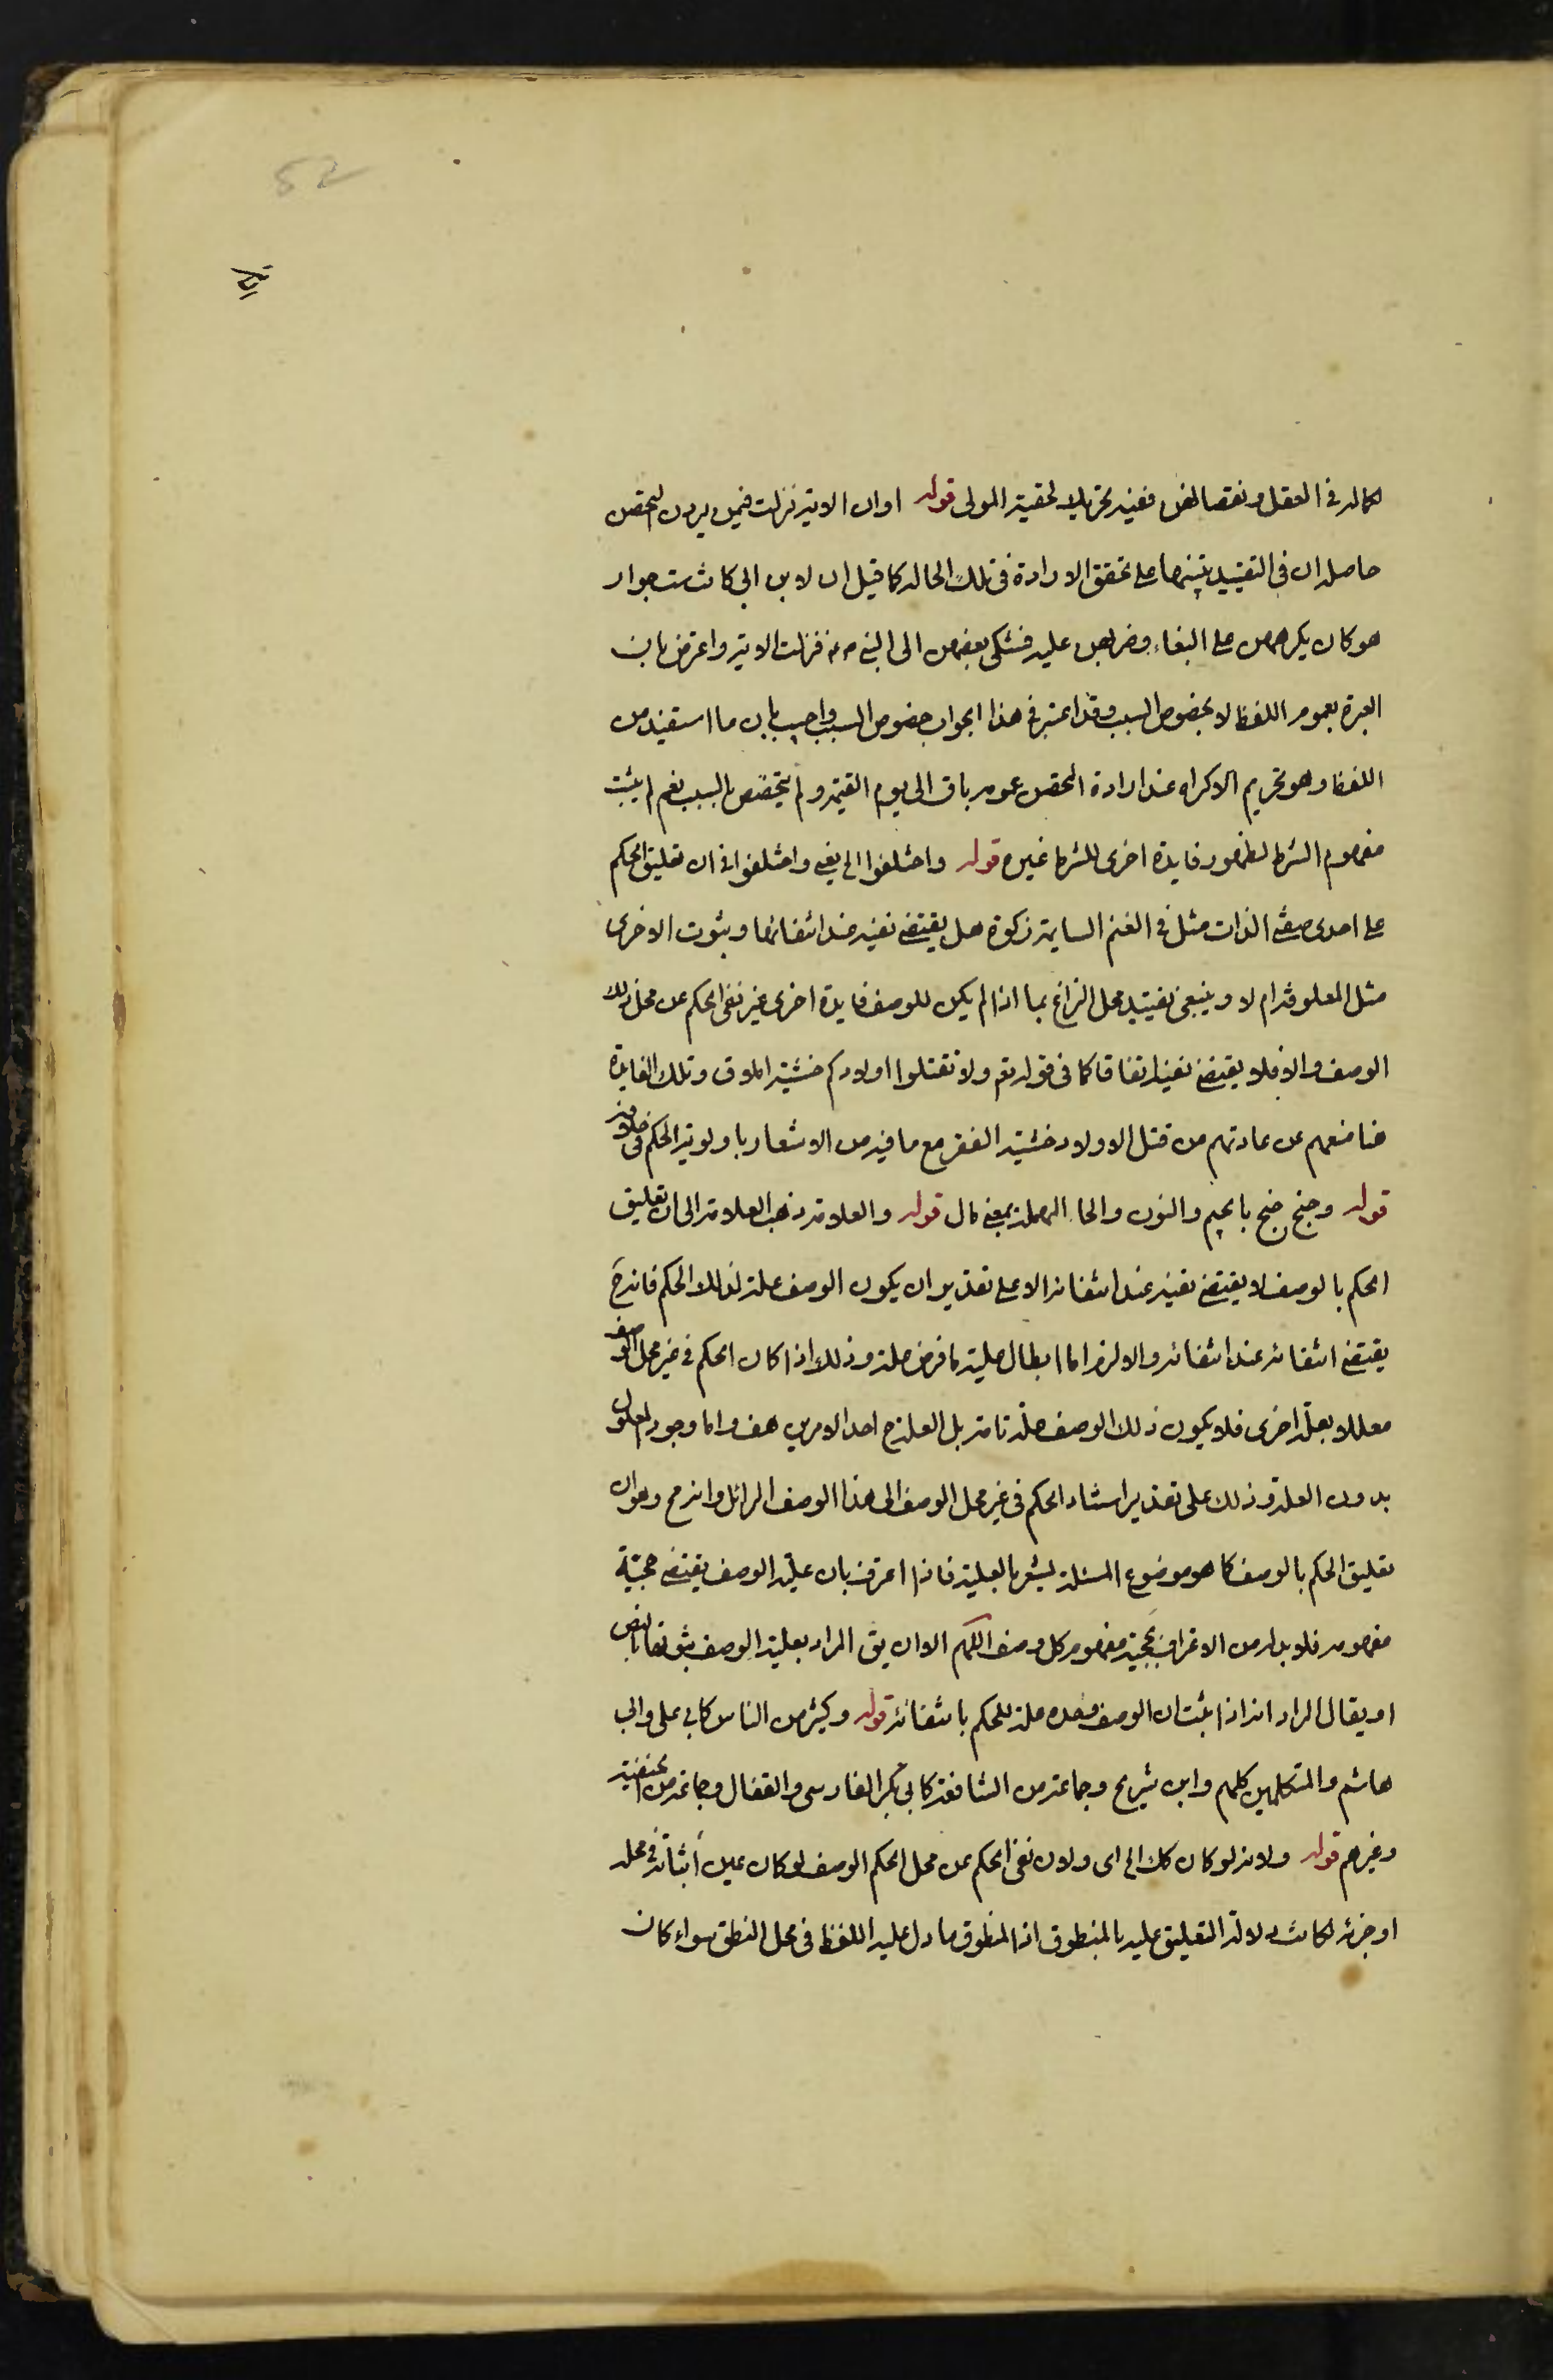 52
لكماله في العقل ونقصانهن ففيه تخييلا لحقية المولى قوله او ان الاية نزلت فيمن يردن التحصن
حاصله ان في التقييد تنبيها على تحقق الارادة في تلك الحاله كما قيل ان لابن ابي كانت ست جوار
هو كان يكرههن على البغاء وضرابهن عليه فشكى بعضهن الى النبي ص فنزلت الاية واعترض بان
العبرة بعموم اللفظ لا بخصوص السبب وقد اعتبر في هذا الجواب خصوص السبب واجيب بان ما استفيد من
اللفظ وهو تحريم الاكراه عند ارادة التحصن عموم باق الى يوم القيمة ولم يتخصص بالسبب نعم لم يثبت
مفهوم الشرط لظهور فايدة اخرى للشرط غيره قوله واختلفوا الخ يعني واختلفوا في ان تعليق الحكم
على احدى صفتي الذات مثل في الغنم السايمة زكوة هل يقتضي نفيه عند انتفائها وثبوت الاخرى
مثل المعلوفة ام لا وينبغي تقييد محل النزاع بما اذا لم يكن للوصف فايدة اخرى غير نفى الحكم عن محل ذلك
الوصف والا فلا يقتضي نفيه اتفاقا كما في قوله تع ولا تقتلوا اولادكم خشية املاق وتلك الفايدة
هنا منعهم عن عادتهم من قتل الاولاد خشية الفقر مع ما فيه من الاشعار باولوية الحكم في خلافه
قوله وجنح جنح بالجيم والنون والحا المهملة بمعنى مال قوله والعلامة ذهب العلامة الى ان تعليق
الحكم بالوصف لا يقتضي نفيه عند انتفائه الا على تقدير ان يكون الوصف علة لذلك الحكم فانه ح
يقتضي انتفائه عند انتفائه والا لزم اما ابطال علية ما فرض علة وذلك اذا كان الحكم في غير محل الوصف
معللا بعلة اخرى فلا يكون ذلك الوصف علة تامة بل العلة ح احد الامرين هف واما وجود المعلول
بدون العلة وذلك على تقدير استناد الحكم في غير محل الوصف الى هذا الوصف الزائل وانه مح وهو ان
تعليق الحكم بالوصف كما هو موضوع المسئلة يشعر بالعلية فاذا اعترف بان علية الوصف يقتضي حجية
مفهومه فلا بد له من الاعتراف بحجية مفهوم كل وصف اللهم الا ان يق المراد بعلية الوصف ثبوتها بالنص
او يقال المراد انه اذا ثبت ان الوصف وحده علة للحكم بانتفائه قوله وكثير من الناس كابي على وابي
هاشم والمتكلمين كلهم وابن شريح وجماعة من الشافعة كابي بكر الفارسى والقفال وجماعة من الحنفية
وغيرهم قوله ولانه لو كان كك الخ اى ولان نفى الحكم عن محل الحكم الوصف لو كان عين اثباته في محله
او جزئه لكانت دلالة التعليق عليه بالمنطوق اذ المنطوق ما دل عليه اللفظ في محل النطق سواء كان